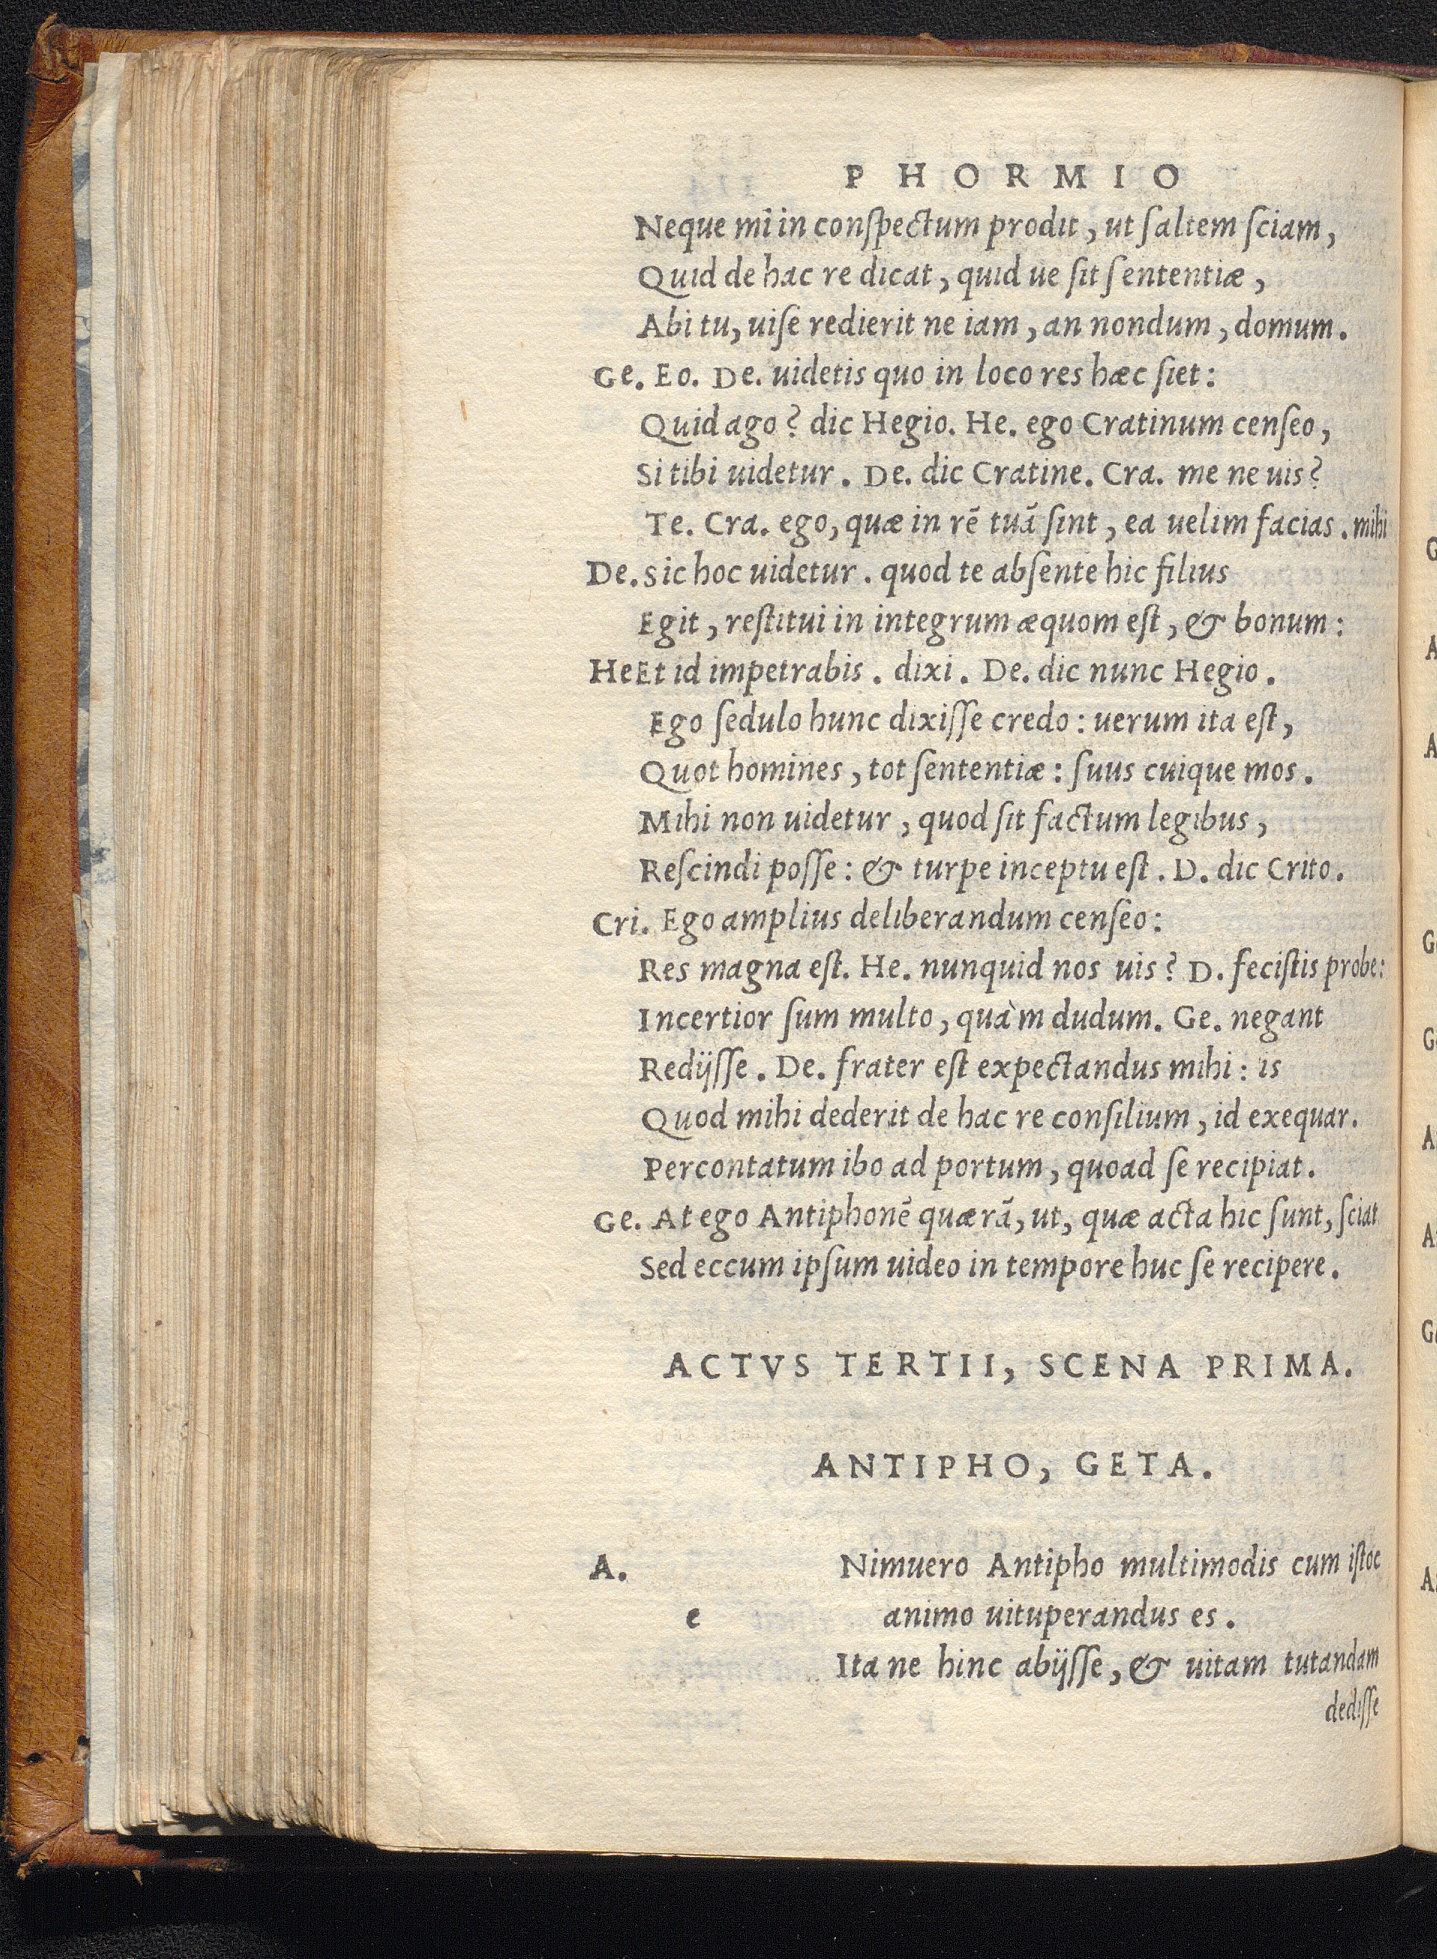 PHORMIO
Neque mî in conſpectum prodit, ut ſaltem ſciam,
Quid de hac re dicat, quid ue ſit ſententiæ,
Abi tu, uiſe redierit ne iam, an nondum, domum.
Ge. Eo. De. uidetis quo in loco res hæc ſiet:
Quid ago? dic Hegio. He. ego Cratinum cenſeo,
Si tibi uidetur. De. dic Cratine. Cra. me ne uis?
Te. Cra. ego, quæ in rē tuā ſint, ea uelim facias. mihi
De. Sic hoc uidetur. quod te abſente hic filius
Egit, reſtitui in integrum æquom eſt, & bonum:
He Et id impetrabis. dixi. De. dic nunc Hegio.
Ego ſedulo hunc dixiſſe credo: uerum ita eſt,
Quot homines, tot ſententiæ: ſuus cuique mos.
Mihi non uidetur, quod ſit factum legibus,
Reſcindi poſſe: & turpe inceptu eſt. D. dic Crito.
Cri. Ego amplius deliberandum cenſeo:
Res magna eſt. He. nunquid nos uis? D. feciſtis probe:
Incertior ſum multo, quàm dudum. Ge. negant
Redijſſe. De. frater eſt expectandus mihi: is
Quod mihi dederit de hac re conſilium, id exequar.
Percontatum ibo ad portum, quoad ſe recipiat.
Ge. At ego Antiphonē quærā, ut, quæ acta hic ſunt, ſciat
Sed eccum ipſum uideo in tempore huc ſe recipere.
ACTVS TERTII, SCENA PRIMA.
ANTIPHO, GETA.
A. Nimuero Antipho multimodis cum iſtoc
e animo uituperandus es.
Ita ne hinc abijſſe, & uitam tutandam
dediſſe